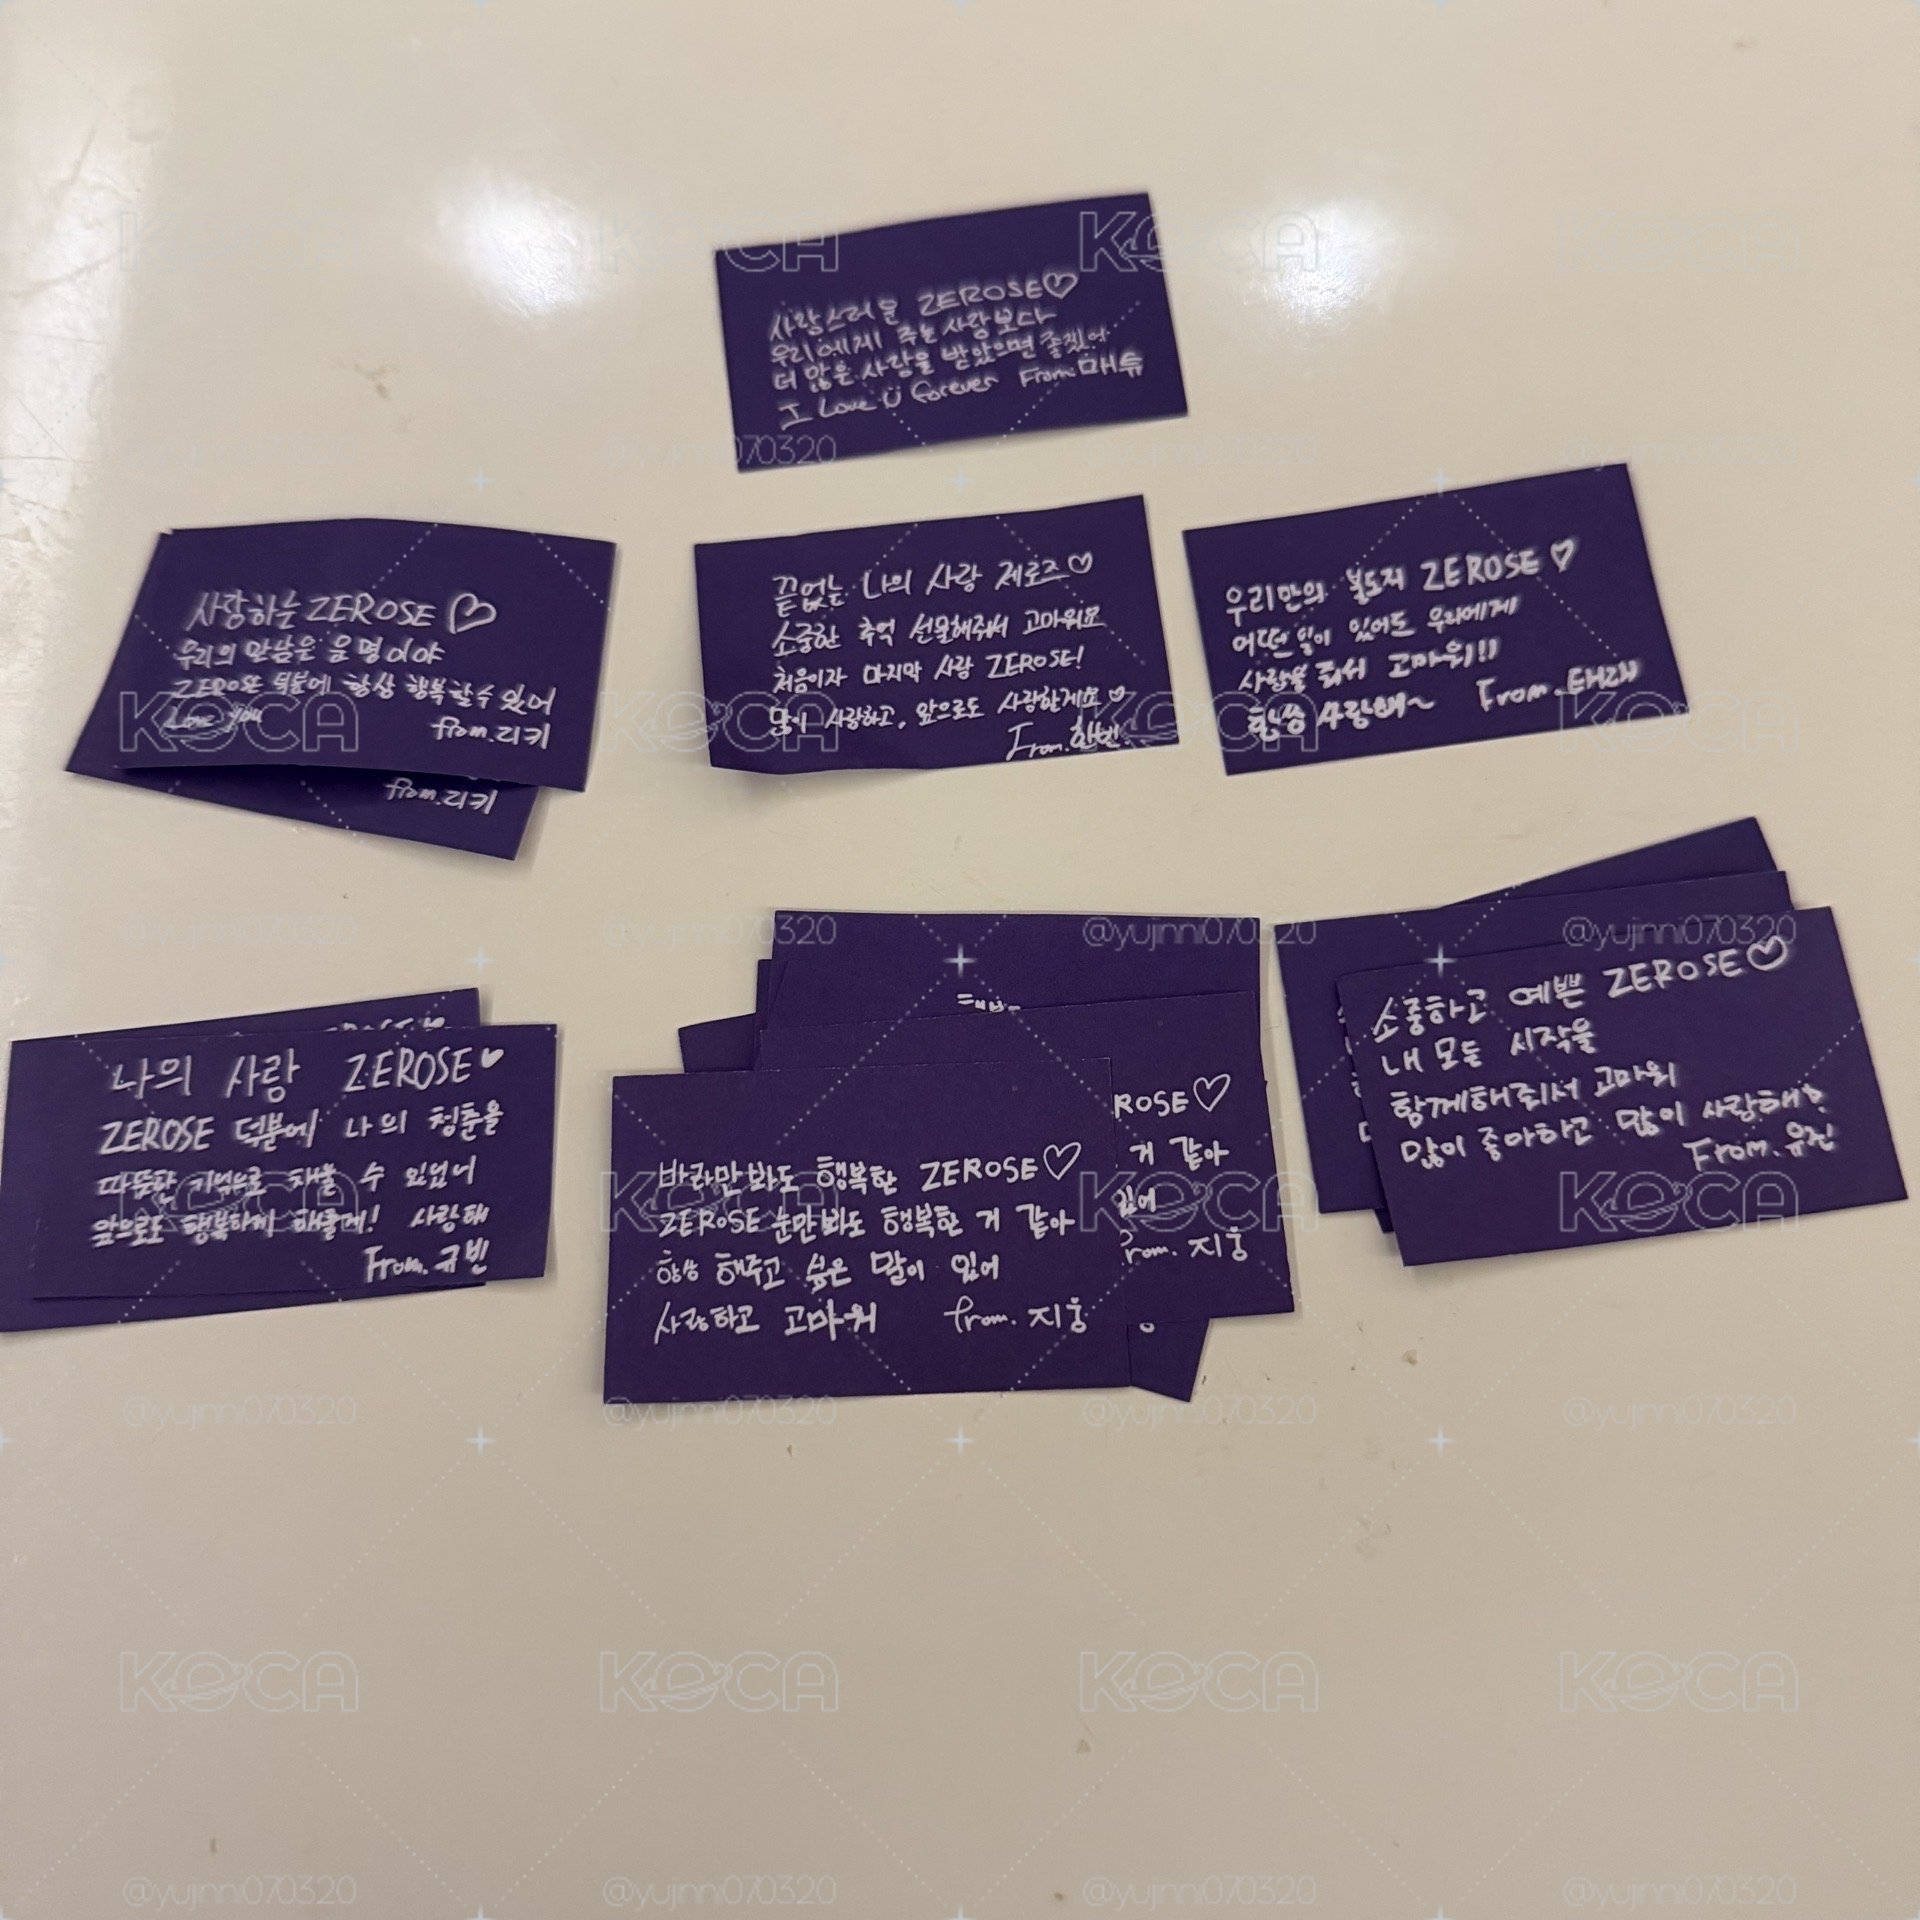 사랑스러운 ZEROSE♡
우리에게 주는 사랑보다
더 많은 사랑을 받았으면 좋겠어
I Love U forever From.매튜
사랑하는 ZEROSE♡
우리의 만남은 운명이야
ZEROSE 덕분에 항상 행복할 수 있어
Love you
from.리키
from.리키
끝없는 나의 사랑 제로즈♡
소중한 추억 선물해줘서 고마워요
처음이자 마지막 사랑 ZEROSE!
많이 사랑하고, 앞으로도 사랑할게요♡
From.한빈.
우리만의 복도지 ZEROSE♡
어떤 일이 있어도 우리에게
사랑을 줘서 고마워!!
항상 사랑해~ From.태래
나의 사랑 ZEROSE♥
ZEROSE 덕분에 나의 청춘을
따뜻한 기억으로 채울 수 있었어
앞으로도 행복하게 해줄게! 사랑해
From.규빈
바라만봐도 행복한 ZEROSE♡
ZEROSE 눈만봐도 행복한 거 같아
항상 해주고 싶은 말이 있어
사랑하고 고마워 from.지웅
ROSE♡
거 같아
있어
from.지웅
소중하고 예쁜 ZEROSE♡
내 모든 시작을
함께해줘서 고마워
많이 좋아하고 많이 사랑해?
From.유진
KOCA
@yujnni070320